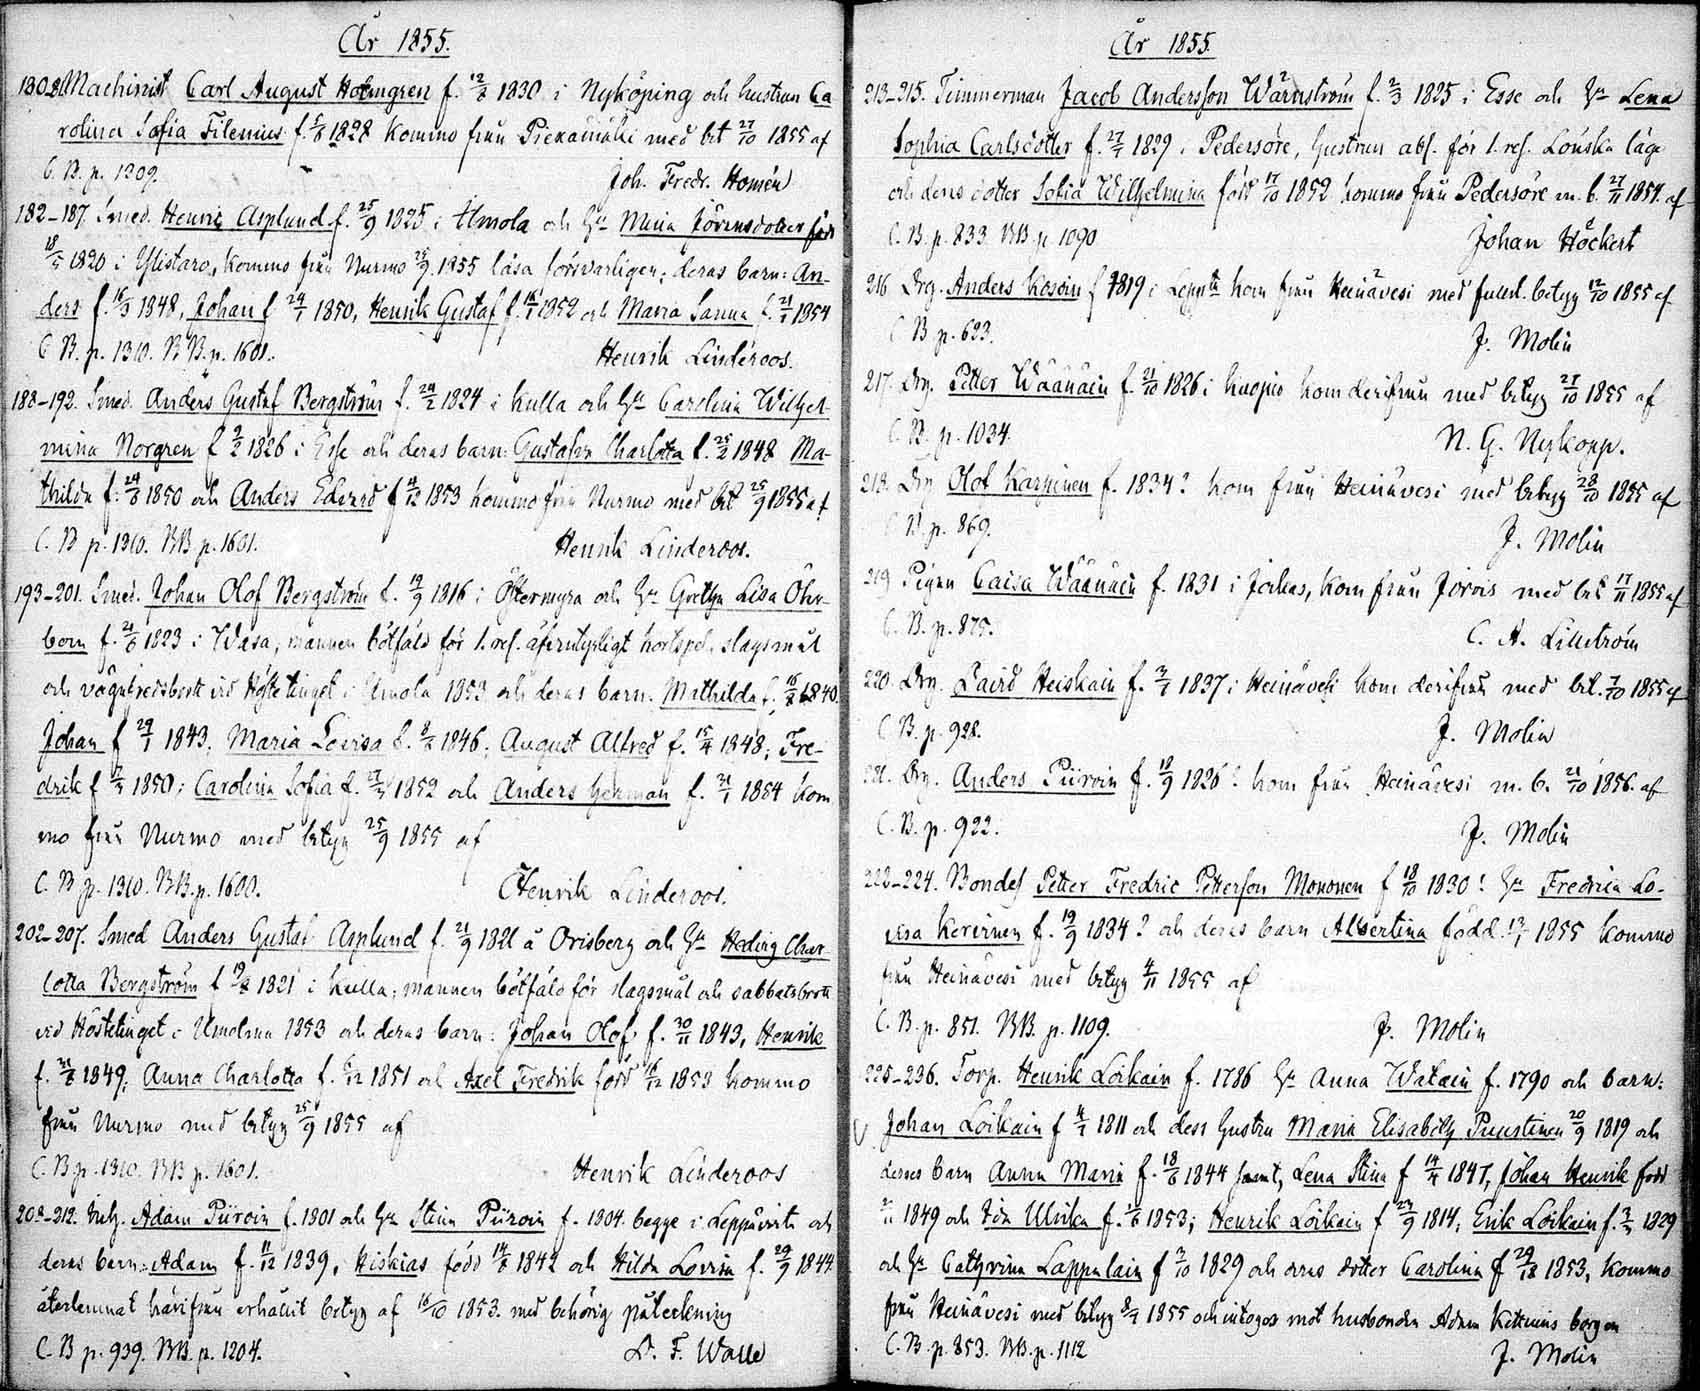 År 1855.
Machinist Carl August Holmgren f. 12/8 1830 i Nyköping och hustrun Ca
rolina Sofia Filenius f. 1828 kommo från Pieksämäki med bet 27/10 1855 af
C. B. p. 1309. Joh. Fredr. Homén
182-187. Smed. Henric Asplund f. 25/9 1825 i Ilmola och H:u Maria Jöransdotter född
18/5 1820 i Ylistaro, kommo från Nurmo 25/9 1855 läsa försvarligen; deras barn: An-
ders f. 16/3 1848, Johan f 24/1 1850, Henrik Gustaf f. 1852 och Maria Sanna f. 21/1 1854
C B. p. 1310. B B. p. 1601. Henrik Linderoos.
188-192. Smed. Anders Gustaf Bergström f. 24/2 1824 i Kulla och H:u Carolina Wilhel-
mina Norgren f 2/2 1826 i Esse och deras barn: Gustafva Charlotta f. 25/2 1848 Ma-
thilda f. 24/8 1850 och Anders Edvard f 4/12 1853 kommo från Nurmo med bet 25/9 1855 af
C. B p. 1310. BB p. 1601. Henrik Linderoos.
193-201. Smed. Johan Olof Bergström f. 19/9 1816 i Östermyra och H:u Gretha Lisa Öhr-
born f. 21/6 1823 i Wasa, mannen bötfäld för 1. res. äfventyrligt kortspel, slagsmål
och vägafredsbrott vid Höstetinget i Ilmola 1853 och deras barn: Mathilda f. 1840.
Johan f 29/1 1843; Maria Lovisa f. 8/8 1846; August Alfred f. 15/4 1848; Fre-
drik f 1850; Carolina Sofia f. 1852 och Anders Herman f. 21/1 1854 kom
mo från Nurmo med betyg 25/9 1855 af
C. B p. 1310. BB. p. 1600. Henrik Linderoos.
202-207. Smed Anders Gustaf Asplund f. 21/9 1821 å Orisberg och H:u Hedvig Char-
lotta Bergström f 19/8 1821 i Kulla; mannen bötfäld för slagsmål och sabbatsbrott
vid Hösttinget i Ilmola 1853 och deras barn: Johan Olof f. 30/11 1843, Henrik
f. 21/8 1849; Anna Charlotta f. 6/12 1851 och Axel Fredrik född 16/12 1853 kommo
från Nurmo med betyg 25/9 1855 af
C. B p. 1310. BB p. 1601. Henrik Linderoos
208-212. Adam Piiroin f. 1801 och H:u Stina Piiroin f. 1804 begge i Leppävirta och
deras barn: Adam f. 11/12 1839, Hiskias född 14/8 1842 och Hilda Lovisa f. 29/9 1844
återlemnat härifrån erhållit betyg af 16/10 1853. med behörig påteckning
C. B p. 939. BB. p. 1204. D. F. Walle
År 1855.
213-215. Timmerman Jacob Andersson Wärnström f. 2/3 1825 i Esse och H:u Lena
Sophia Carlsdotter f. 27/1 1829 i Pedersöre, hustrun abs. för 1. res. Lönska läge
och deras dotter Sofia Wilhelmina född 17/10 1852 kommo från Pedersöre m. b. 27/11 1854. af
C. B. p. 833. BB. p. 1090 Johan Höckert
216 Drg. Anders Kosoin f 1819 i Leppta kom från Heinävesi med betyg 12/10 1855 af
C B p. 623. J. Molin
217. Drg. Petter Wäänäin f. 21/10 1826 i Kuopio kom derifrån med betyg 27/10 1855 af
C. B. p. 1034. N. G. Nykopp.
218. Drg Olof Karpinen f. 1834? kom från Heinävesi med betyg 28/10 1855 af
C B. p. 869. J. Molin
219 Pigan Caisa Wäänäin f. 1831 i Jockas, kom från Jorois med bet 17/11 1855 af
C. B. p. 875. C. A. Lilliström
220. Drg. David Heiskain f. 1837 i Heinävesi kom derifrån med bet. 7/10 1855 af
C B. p. 928. J. Molin
221. Drg. Anders Piiroin f. 18/9 1826? kom från Heinävesi m. b. 21/10 1856. af
C. B. p. 922. J. Molin
222-224. Bondes. Petter Fredric Petterson Mononen f 18/10 1830? H:u Fredrica Lo-
visa Kervinen f. 19/9 1834? och deras barn Albertina född 1855 kommo
från Heinävesi med betyg 4/11 1855 af
C. B. p. 851. BB. p. 1109. J. Molin
225-236. Torp. Henrik Loikain f. 1786 H:u Anna Watain f. 1790 och barn:
Johan Loikain f 1811 och dess hustru Maria Elisabeth Puustinen 20/9 1819 och
deras barn Anna Maria f. 18/6 1844 samt, Lena Stina f 14/4 1847, Johan Henrik född
1849 och Ida Ulrika f. 1853; Henrik Loikain f 24/9 1814, Erik Loikain f. 1829
och H:u Cathrina Lappalain f 2/10 1829 och deras dotter Carolina f 1853, kommo
från Heinävesi med betyg 1855 och intogos mot husbonden Adam borgen
C. B. p. 853. BB. p. 1112 J. Molin